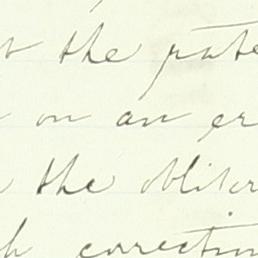 the pate
on an er
the obliter
correction